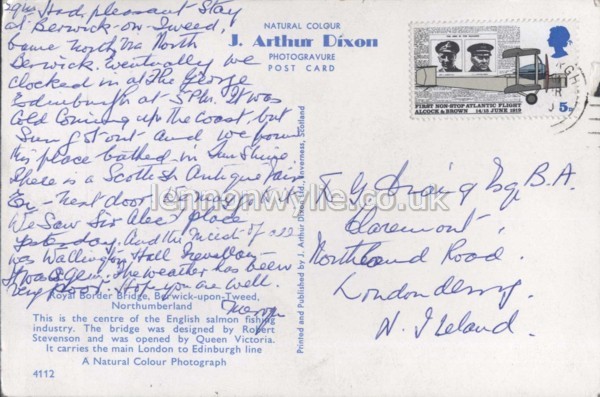 Had, pleasant stay
at Berwick-on-Tweed,
came North via North
Berwick. Eventually we
clocked in at The George
Edinburgh at 5 P.M. It was
Cold Coming up the coast, but
Sun got out and we found
this place bathed in Sunshine.
There is a Scottish Antique fair
next door
We Saw Sir Alec's place
yesterday. And the
was Wallington Hall
It was a gem. The weather has been
very poor. Hope you are well.
NATURAL COLOUR
J. Arthur Dixon
PHOTOGRAVURE
POST CARD
FIRST NON-STOP ATLANTIC FLIGHT
ALCOCK & BROWN 14/15 JUNE 1919
5D
Printed and Published by J. Arthur Dixon Ltd., Inverness, Scotland
lennonwylie.co.uk
Esq B.A.
Claremont,
Northland Road.
Londonderry.
N. Ireland.
Royal Border Bridge, Berwick-upon-Tweed,
Northumberland
This is the centre of the English salmon fishing
industry. The bridge was designed by Robert
Stevenson and was opened by Queen Victoria.
It carries the main London to Edinburgh line
A Natural Colour Photograph
4112